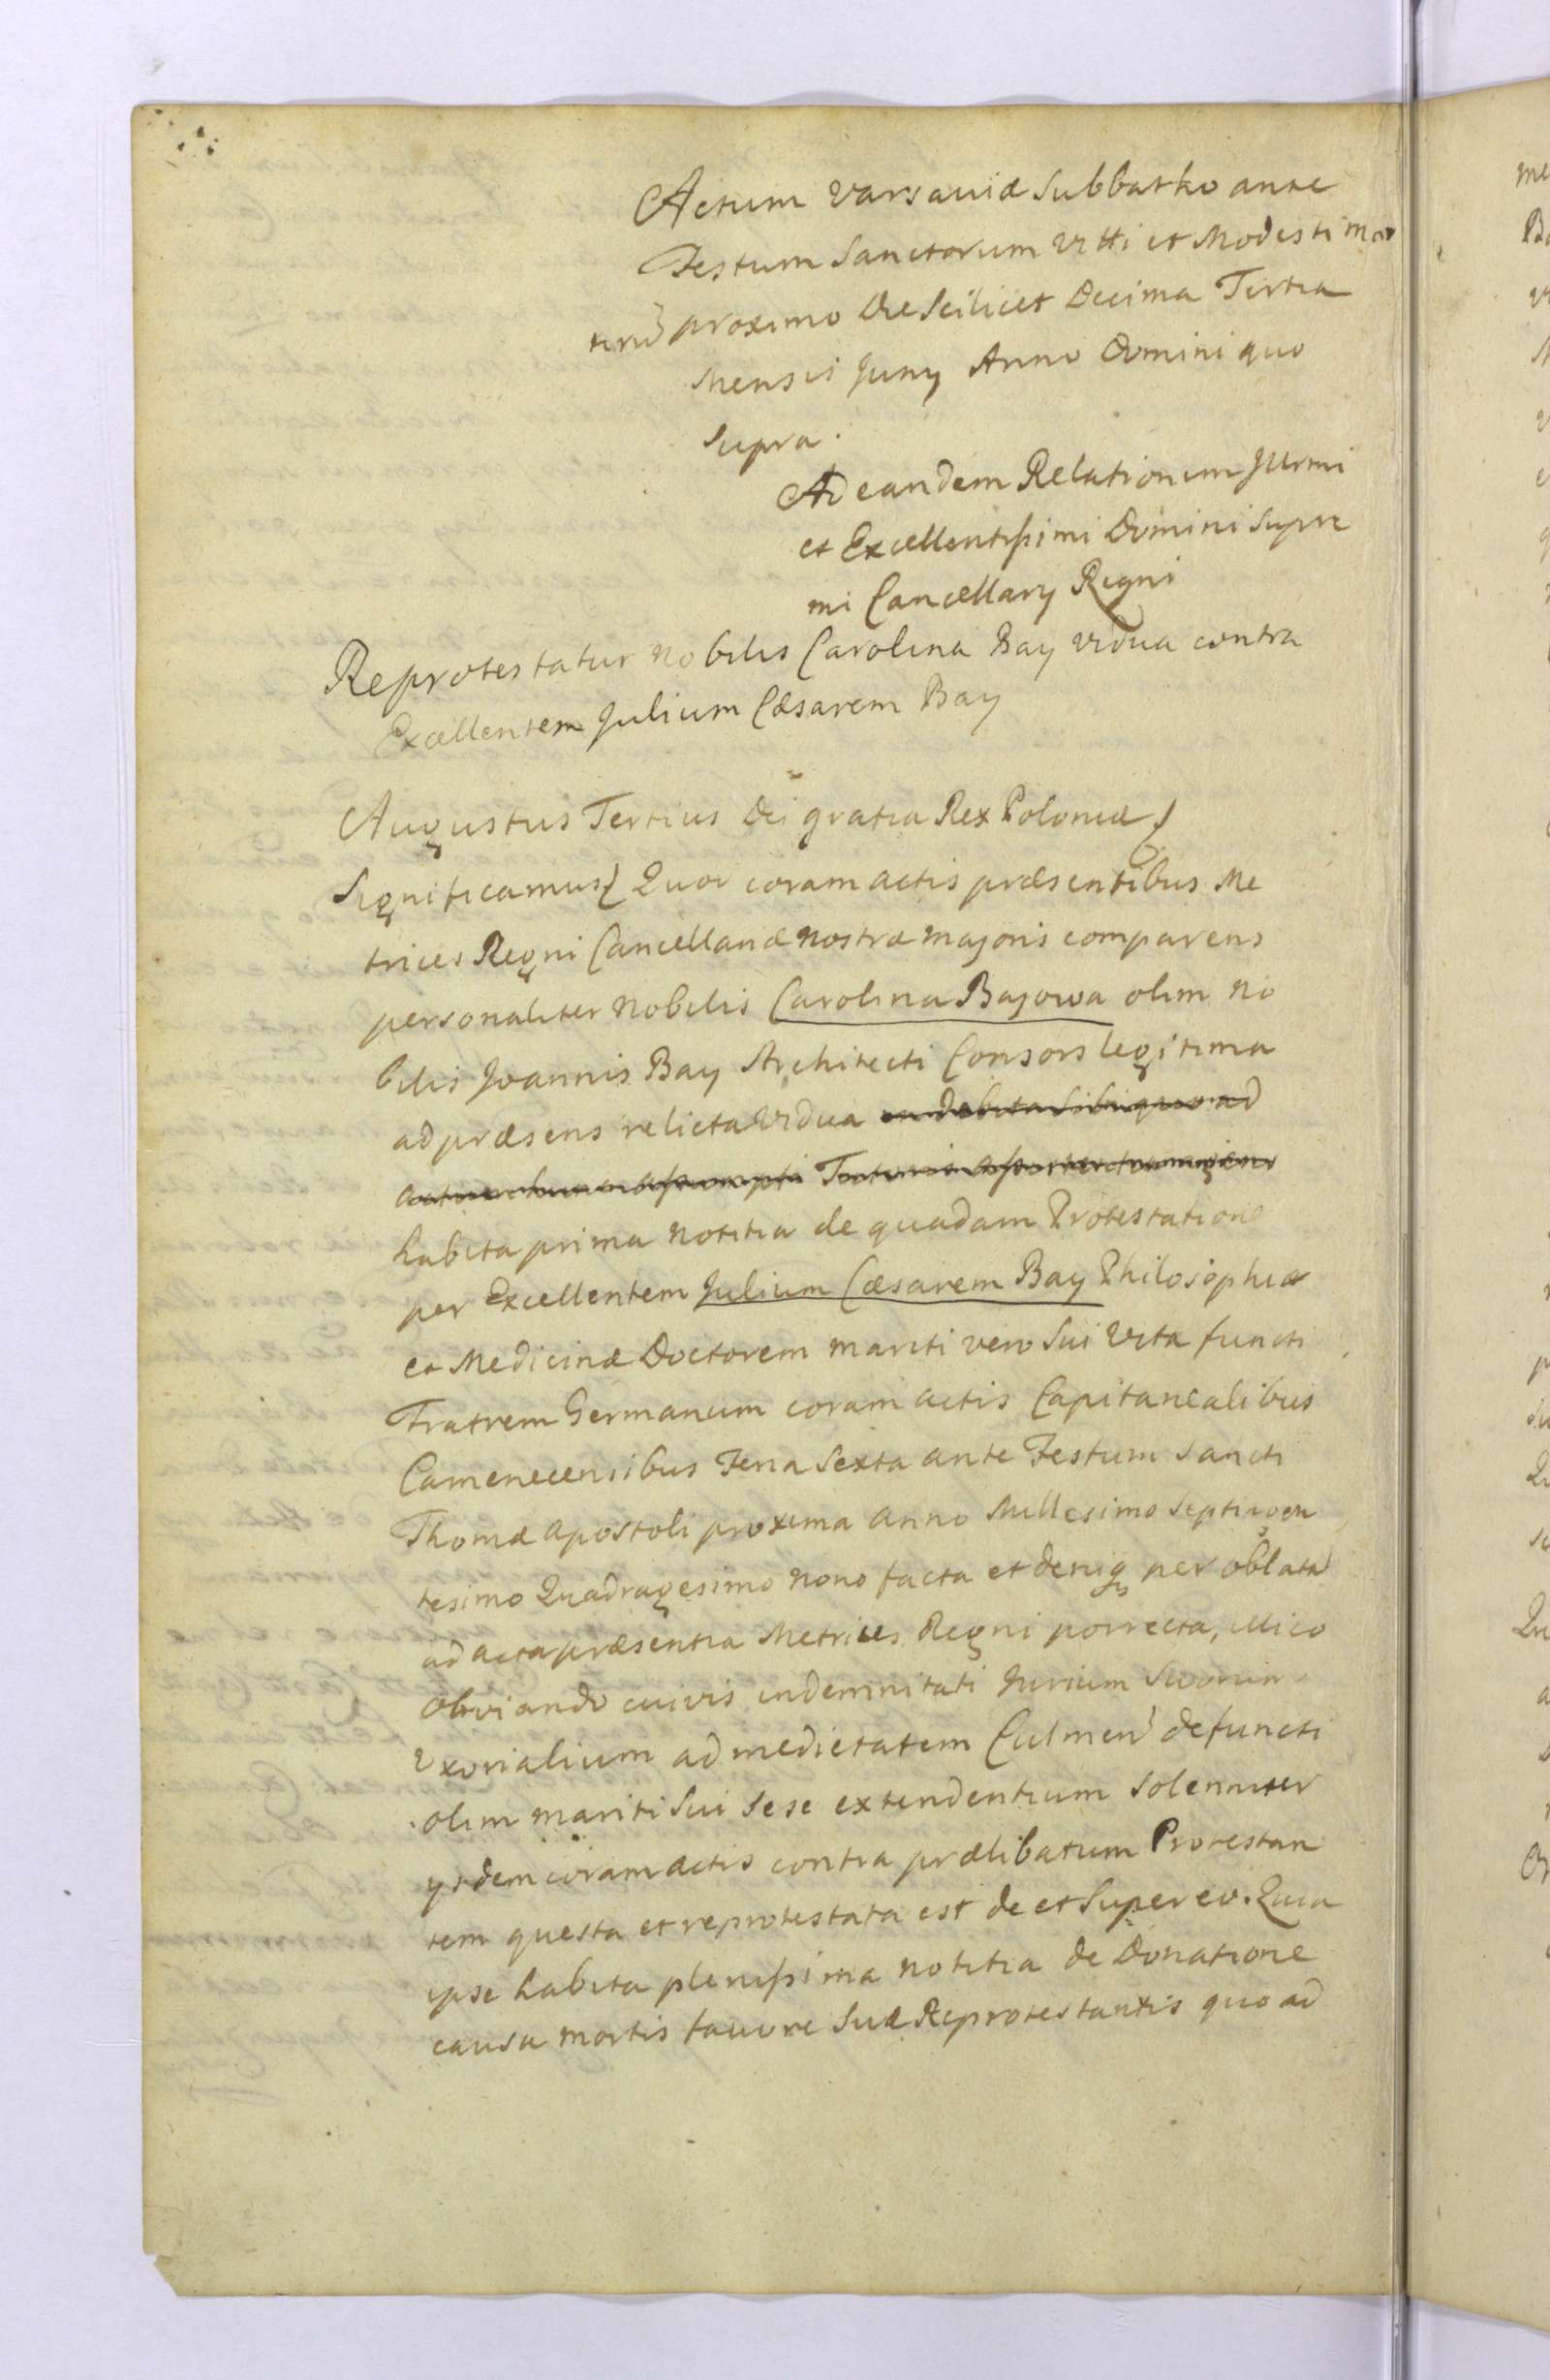 Actum Varsaviæ Sabbatho ante
Festum Sanctorum Viti et Modesti Mar
tirũ proximo Die Scilicet Decima Tertia
Mensis Juny Anno Domini quo
supra.
Ad eandem Relationem Jllrmi
et Excellentissimi Domini Supre
mi Cancellary Regni
Reprotestatur Nobilis Carolina Bay vidua contra
Excellentem Julium Cæsarem Bay
Augustus Tertius Dei gratia Rex Poloniæ
Significamus Quod coram actis præsentibus Me
trices Regni Cancellariæ Nostræ Majoris comparens
personaliter Nobilis Carolina Bajowa olim No
bilis Joannis Bay Architecti Consors legitima
ad præsens relicta Vidua
habita prima notitia de quadam Protestatione
per Excellentem Julium Cæsarem Bay Philosophiæ
et Medicinæ Doctorem mariti vero Sui Vita functi
Fratrem Germanum coram actis Capitanealibus
Camenecensibus Feria Sexta ante Festum Sancti
Thomæ Apostoli proxima Anno Millesimo Septingen
tesimo Quadragesimo Nono facta et deniq per oblatã
ad acta præsentia Metrices Regni porrecta, illico
obviando cuivis indemnitati Jurium Suorum
Uxorialium ad medietatem Culmeñ defuncti
olim mariti Sui Sese extendentium Solenniter
ysdem coram actis contra prælibatum Protestan
tem questa et reprotestata est de et Super eo. Quia
ipse habita plenissima notitia de Donatione
causa mortis favore Suæ Reprotestantis quo ad